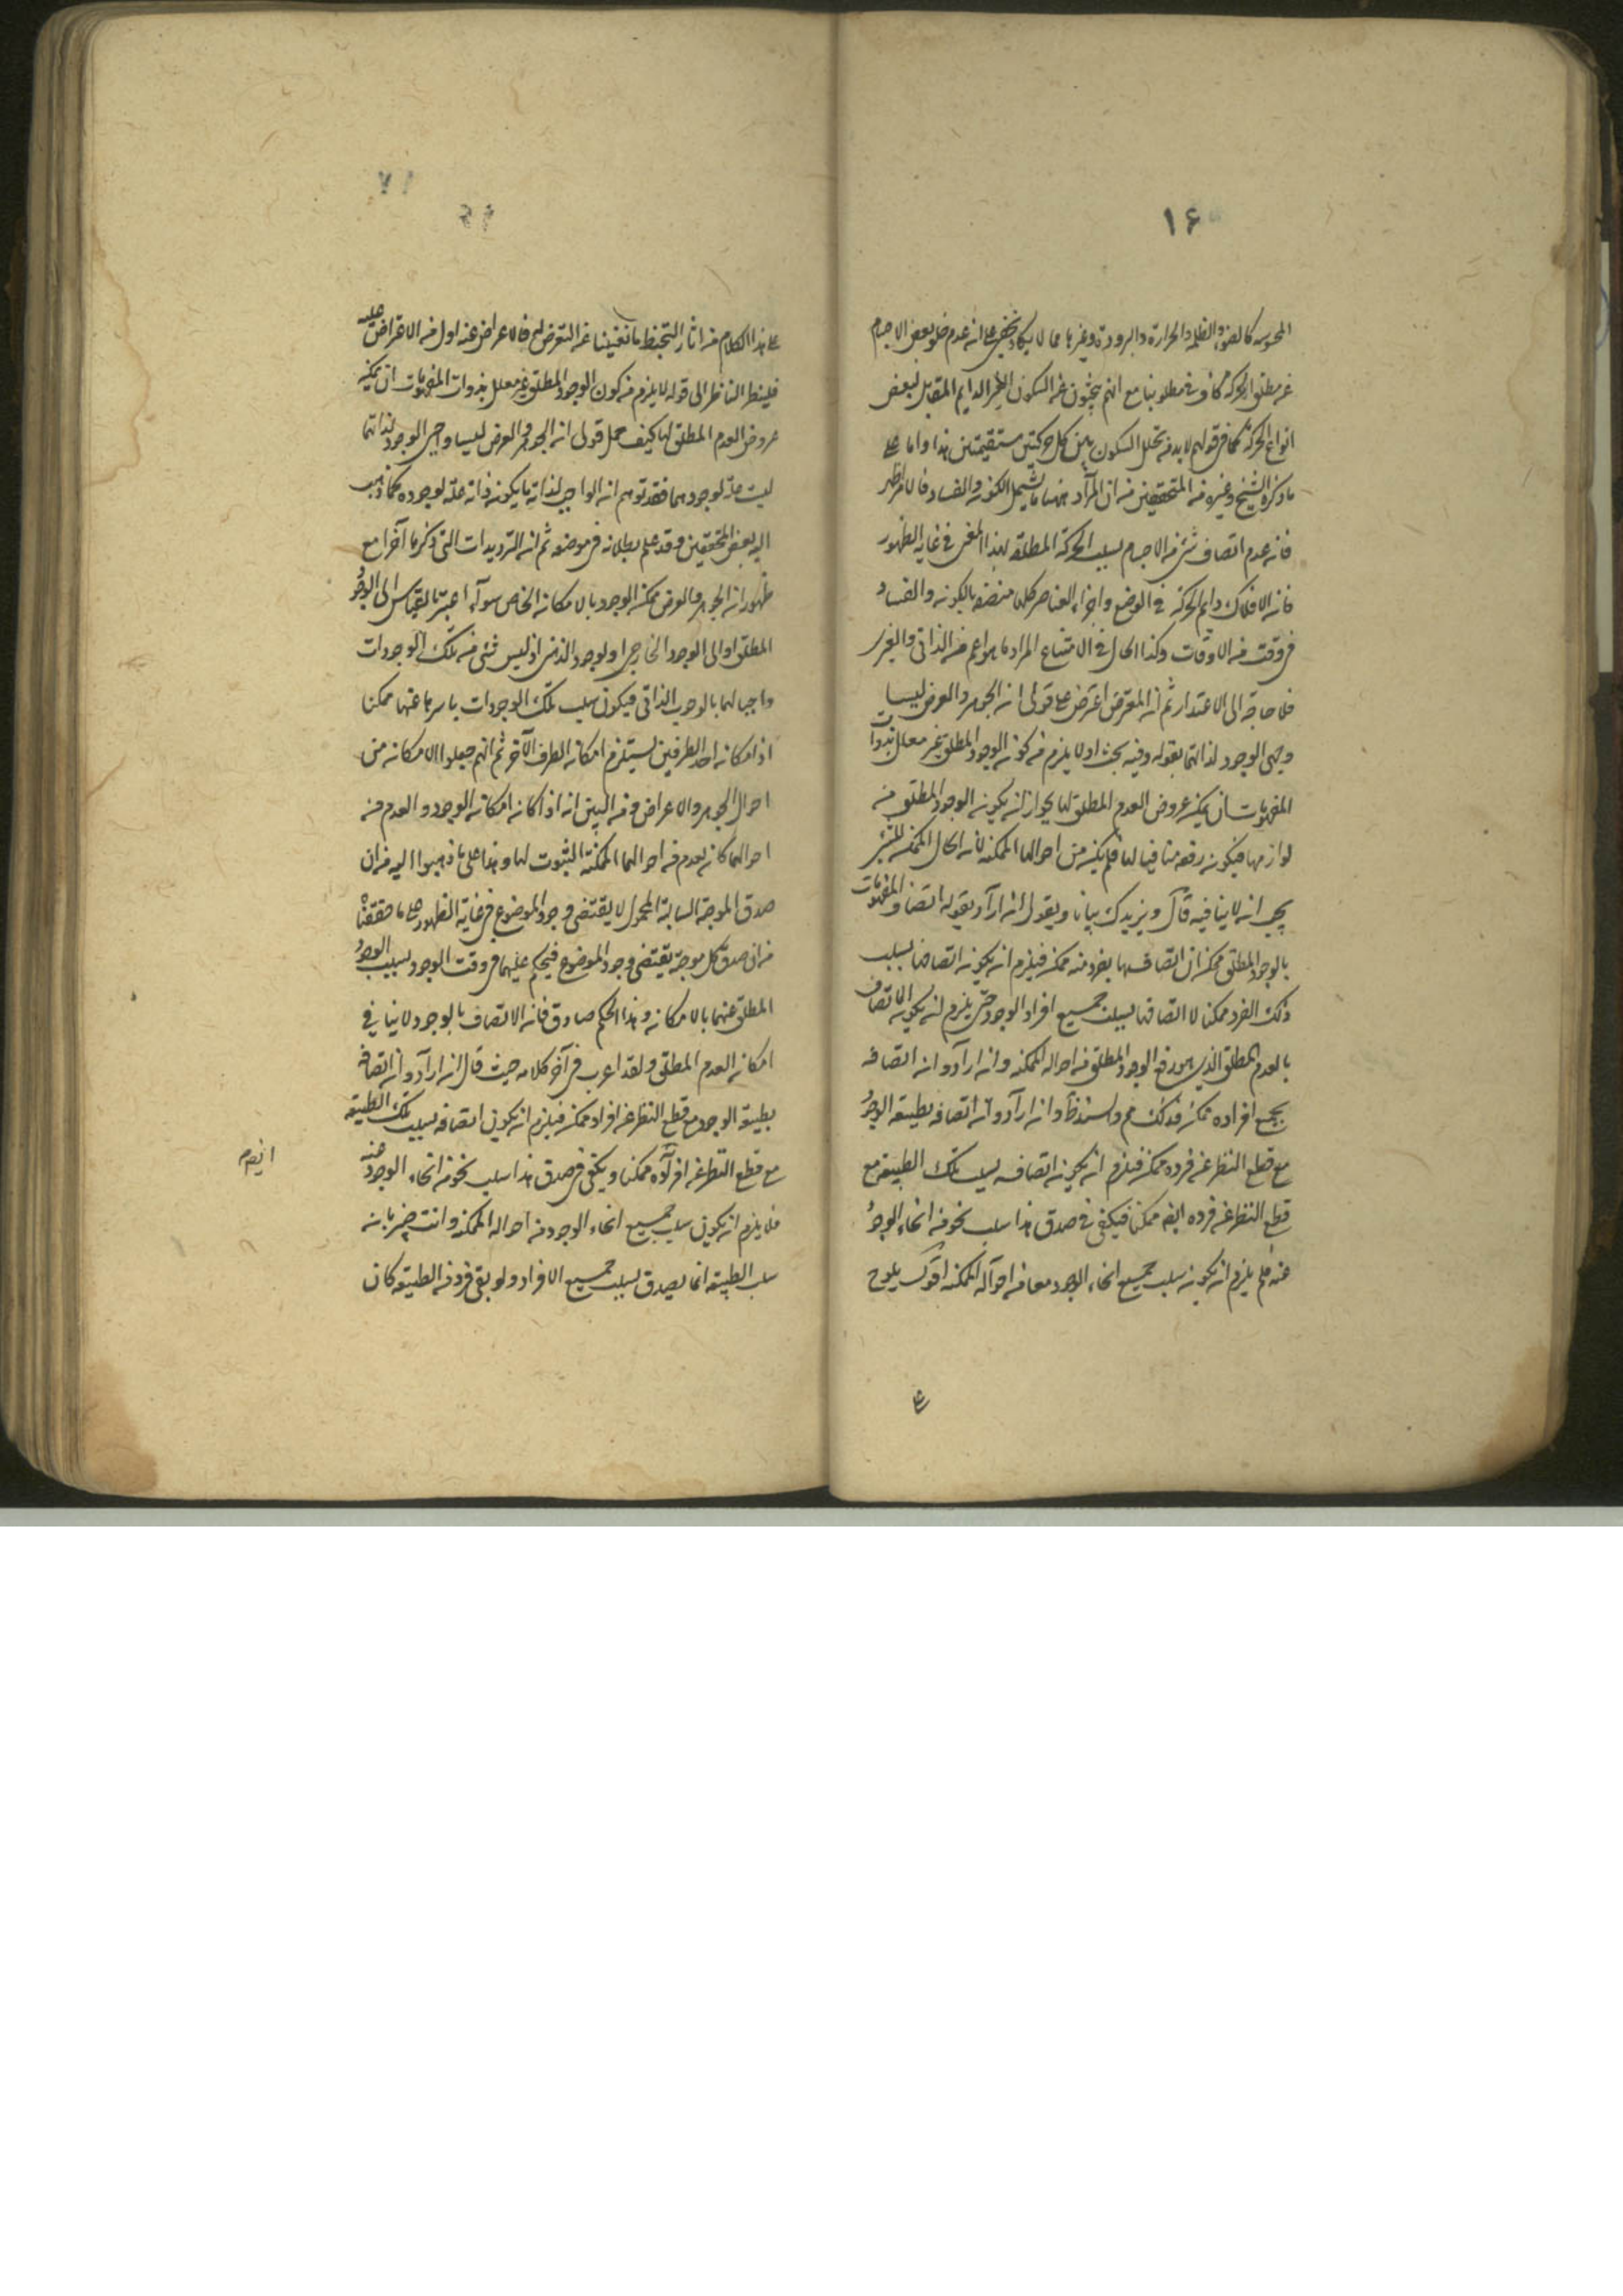 ١۶
المحسوسه كالضوء والظلمه والحرارة والبرودة وغيرها مما لا يكاد يخفى على انه عدم خلو بعض الاجسام
عن مطلق الحركة كاف فى مطلوبنا مع انهم يبحثون عن السكون الغير الدايم المقابل لبعض
انواع الحركة كما فى قولهم لا بد من تخلل السكون بين كل حركتين مستقيمتين هذا واما على
ما ذكره الشيخ وغيره من المحققين من ان المراد ههنا ما يشمل الكون والفساد فالامر اظهر
فان عدم اتصاف شئ من الاجسام بسلب الحركة المطلقه بهذا المعنى فى غاية الظهور
فان الافلاك دايم الحركة فى الوضع واجزاء العناصر كلها متصفه بالكون والفساد
فى وقت من الاوقات وكذا الحال فى الامتناع المراد ما هو اعم من الذاتى والغيرى
فلا حاجة الى الاعتذار ثم ان المعترض اعترض على قولى ان الجوهر والعرض ليسا
واجبى الوجود لذاتهما بقوله وفيه بحث اذ لا يلزم من كون الوجود المطلق غير معلل بذوات
المفهومات ان يمكن عروض العدم المطلق لها بجواز ان يكون الوجود المطلق من
لوازمها فيكون رفعه منافيا لها فلم يكن من احوالها الممكنه لان الحال الممكن للشئ
يجب ان لا ينافيه قال ويزيدك بيانا ويقول ان اراد بقوله اتصاف المفهومات
بالوجود المطلق ممكن ان اتصافها بفرد منه ممكن فيلزم ان يكون اتصافها بسلب
ذلك الفرد ممكنا لا اتصافها بسلب جميع افراد الوجود حتى يلزم ان يكون الاتصاف
بالعدم المطلق الذى هو رفع الوجود المطلق من احواله الممكنه وان اراد و ان اتصافه
بجميع افراده ممكن فذلك مم والسند ظ وان اراد و ان اتصافه بطبيعة الوجود
مع قطع النظر عن فرده ممكن فيلزم ان يكون اتصافه بسلب تلك الطبيعه مع
قطع النظر عن فرده ايضه ممكنا فيكفى فى صدق هذا سلب نحو من انحاء الوجود
عنه فلم يلزم ان يكون سلب جميع انحاء الوجود معا من احواله الممكنه اقول يلوح
ع
٧١
على هذا الكلام من اثار التخبط ما تغنينا عن التعرض له فالاعراض عنه اولى من الاعتراض عليه
فلينظر الناظر الى قوله لا يلزم من كون الوجود المطلق غير معلل بذوات المفهومات ان يمكن
عروض العدم المطلق لها كيف حمل قولى ان الجوهر والعرض ليسا واجبى الوجود لذاتهما
ليست علة لوجودهما فقد توهم ان الواجب لذاته ما يكون ذاته علة لوجوده كما ذهب
اليه بعض المحققين وقد علم بطلانه فى موضعه ثم ان الترديدات التى ذكرها آخرا مع
ظهور ان الجوهر والعرض ممكن الوجود بالامكان الخاص سواء اعتبرتا بالقياس الى الوجود
المطلق او الى الوجود الخارجى او لوجود الذهنى اذ ليس شئ من تلك الوجودات
واجبا لهما بالوجوب الذاتى فيكون سلب تلك الوجودات باسرها عنهما ممكنا
اذ امكان احد الطرفين يستلزم امكان الطرف الآخر ثم انهم جعلوا الامكان من
احوال الجوهر والاعراض ومن البين انه اذا كان امكان الوجود والعدم من
احوالهما كان العدم من احوالهما الممكنة الثبوت لها وهذا على ما ذهبوا اليه من ان
صدق الموجبة السالبة المحمول لا يقتضى وجود الموضوع فى غاية الظهور على ما حققنا
من ان صدق كل موجبة يقتضى وجود الموضوع فيحكم عليهما فى وقت الوجود بسلب الوجود
المطلق عنهما بالامكان وهذا الحكم صادق فان الاتصاف بالوجود لا ينافى
امكان العدم المطلق ولقد اعرب فى آخر كلامه حيث قال ان اراد و ان اتصافه
بطبيعة الوجود مع قطع النظر عن افراده ممكن فيلزم ان يكون اتصافه بسلب تلك الطبيعه
مع قطع النظر عن افراده ممكنا ويكفى فى صدق هذا سلب نحو من انحاء الوجود عنه
فلا يلزم ان يكون سلب جميع انحاء الوجود من احواله الممكنه وانت خبير بان
سلب الطبيعه انما يصدق بسلب جميع الافراد ولو بقى فرد من الطبيعه كان